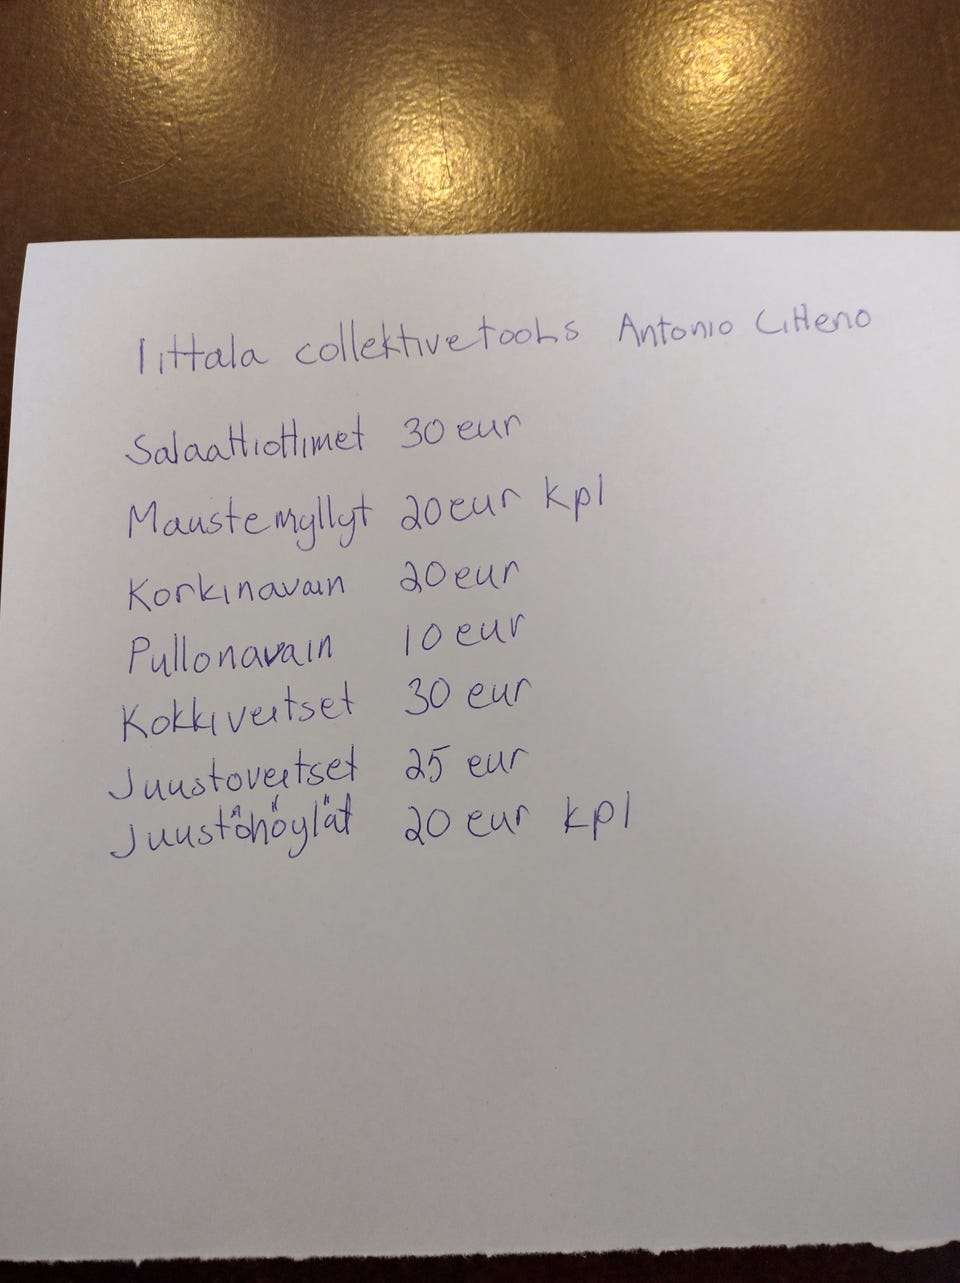 Iittala collektivetools Antonio Citteno
Salaattiottimet 30 eur
Maustemyllyt 20 eur kpl
Korkinavain 20 eur
Pullonavain 10 eur
Kokkiveitset 30 eur
Juustoveitset 25 eur
Juustöhöylät 20 eur kpl